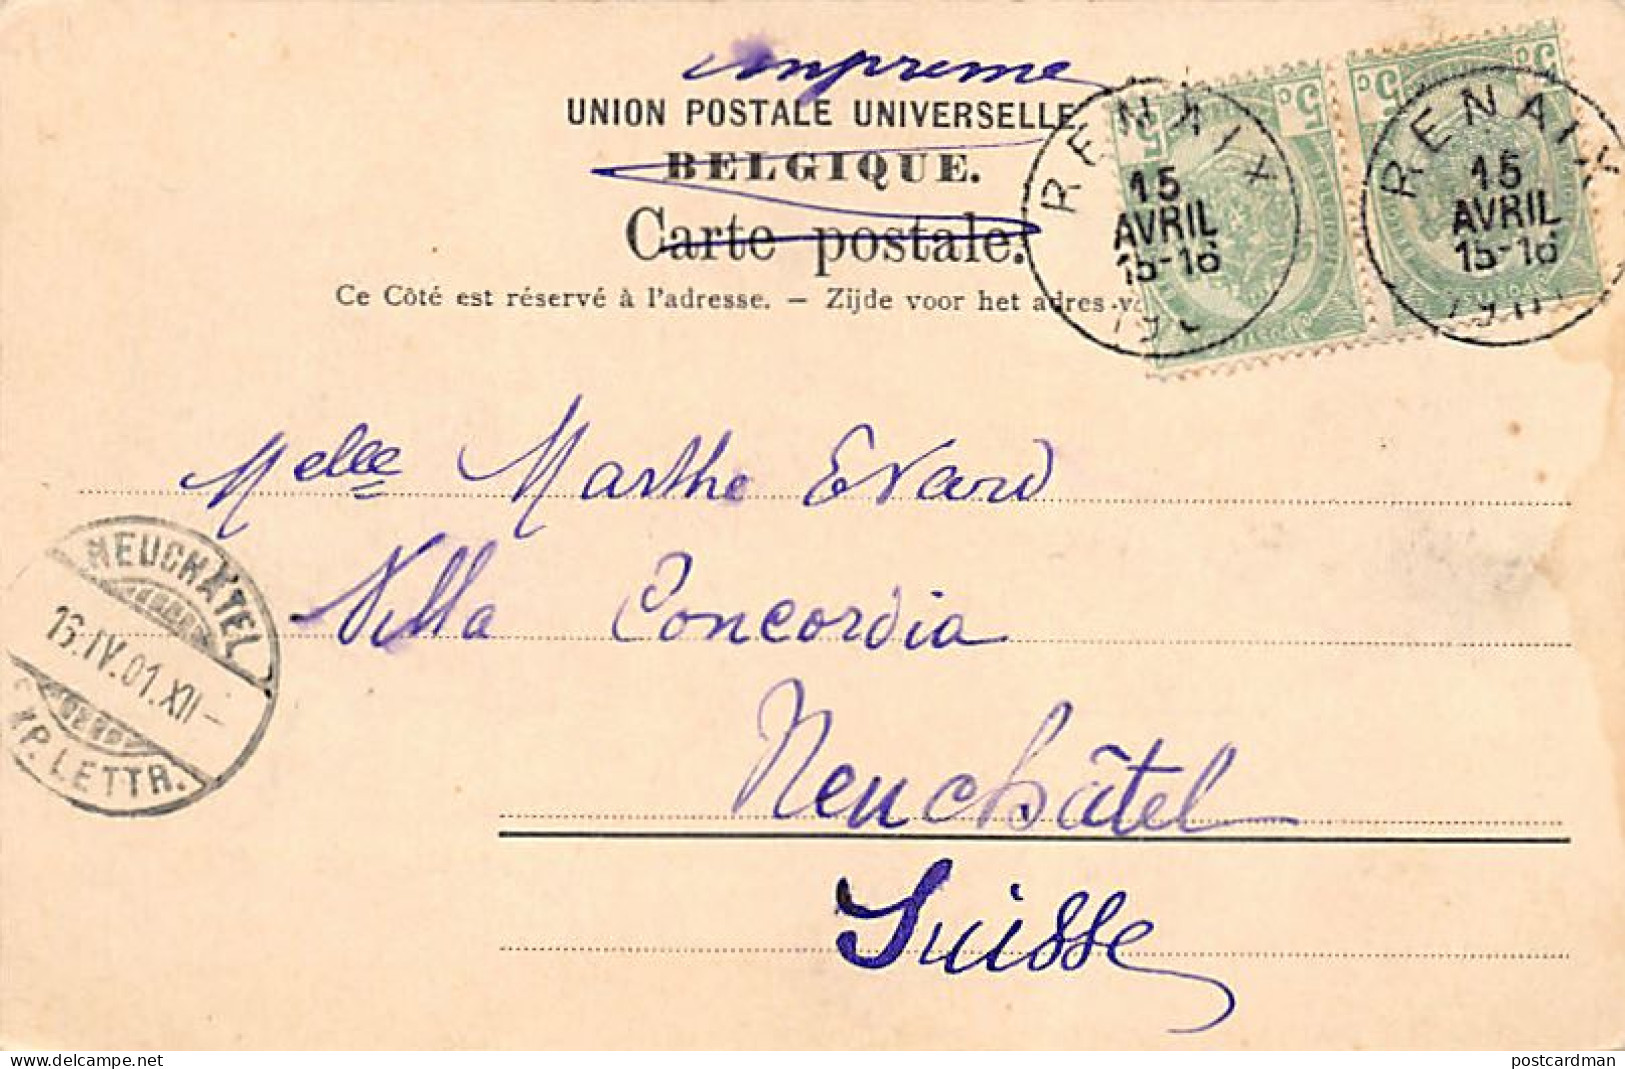 Imprime
UNION POSTALE UNIVERSELLE
BELGIQUE.
Carte postale.
Ce Côté est réservé à l'adresse. — Zijde voor het adres
5 c 5 c
5 c 5 c
RENAIX
15
AVRIL
15-16
RENAIX
15
AVRIL
15-16
Melle Marthe Evard
Villa Concordia
Neuchâtel
Suisse
NEUCHÂTEL
16.IV.01.XII-
EXP. LETTR.
delcampe.net
postcardman